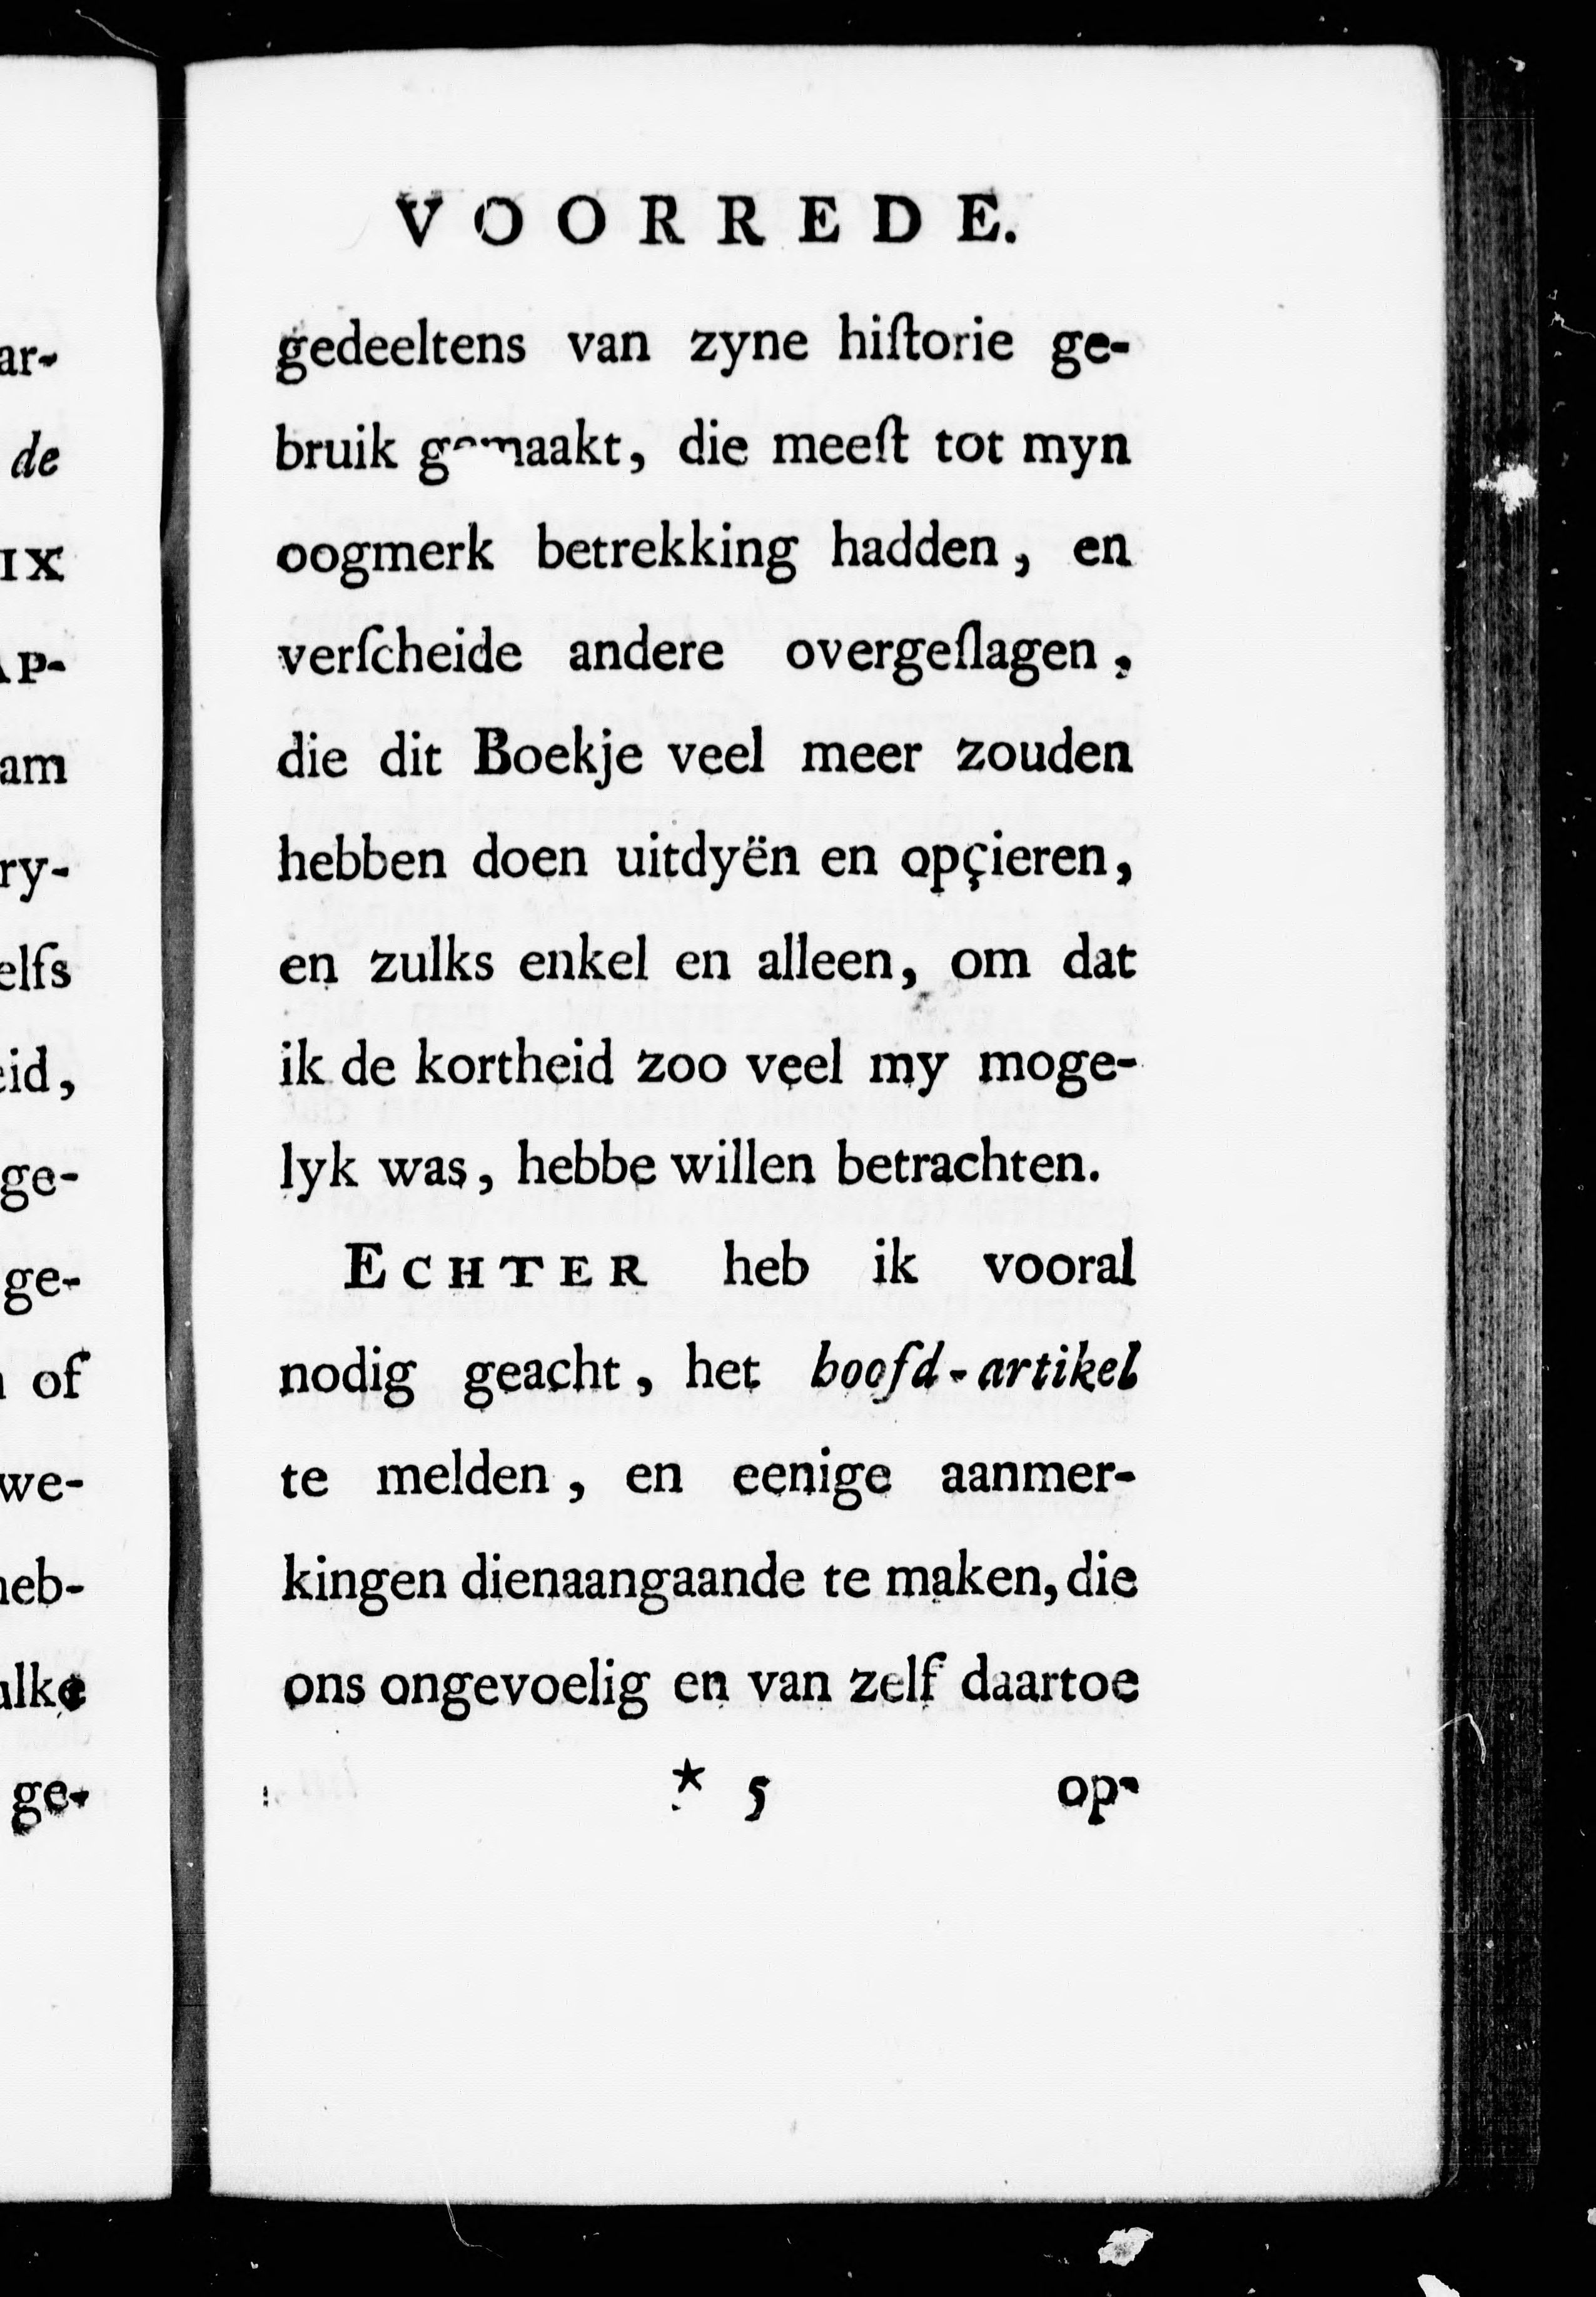 VOORREDE.
gedeeltens van zyne hiſtorie ge-
bruik gemaakt, die meeſt tot myn
oogmerk betrekking hadden, en
verſcheide andere overgeſlagen,
die dit Boekje veel meer zouden
hebben doen uitdyën en opçieren,
en zulks enkel en alleen, om dat
ik de kortheid zoo veel my moge-
lyk was, hebbe willen betrachten.
ECHTER heb ik vooral
nodig geacht, het hoofd-artikel
te melden, en eenige aanmer-
kingen dienaangaande te maken, die
ons ongevoelig en van zelf daartoe
* 5 op-
ar-
de
IX
AP-
am
ry-
elfs
eid,
ge-
ge-
of
we-
heb-
ulke
ge-